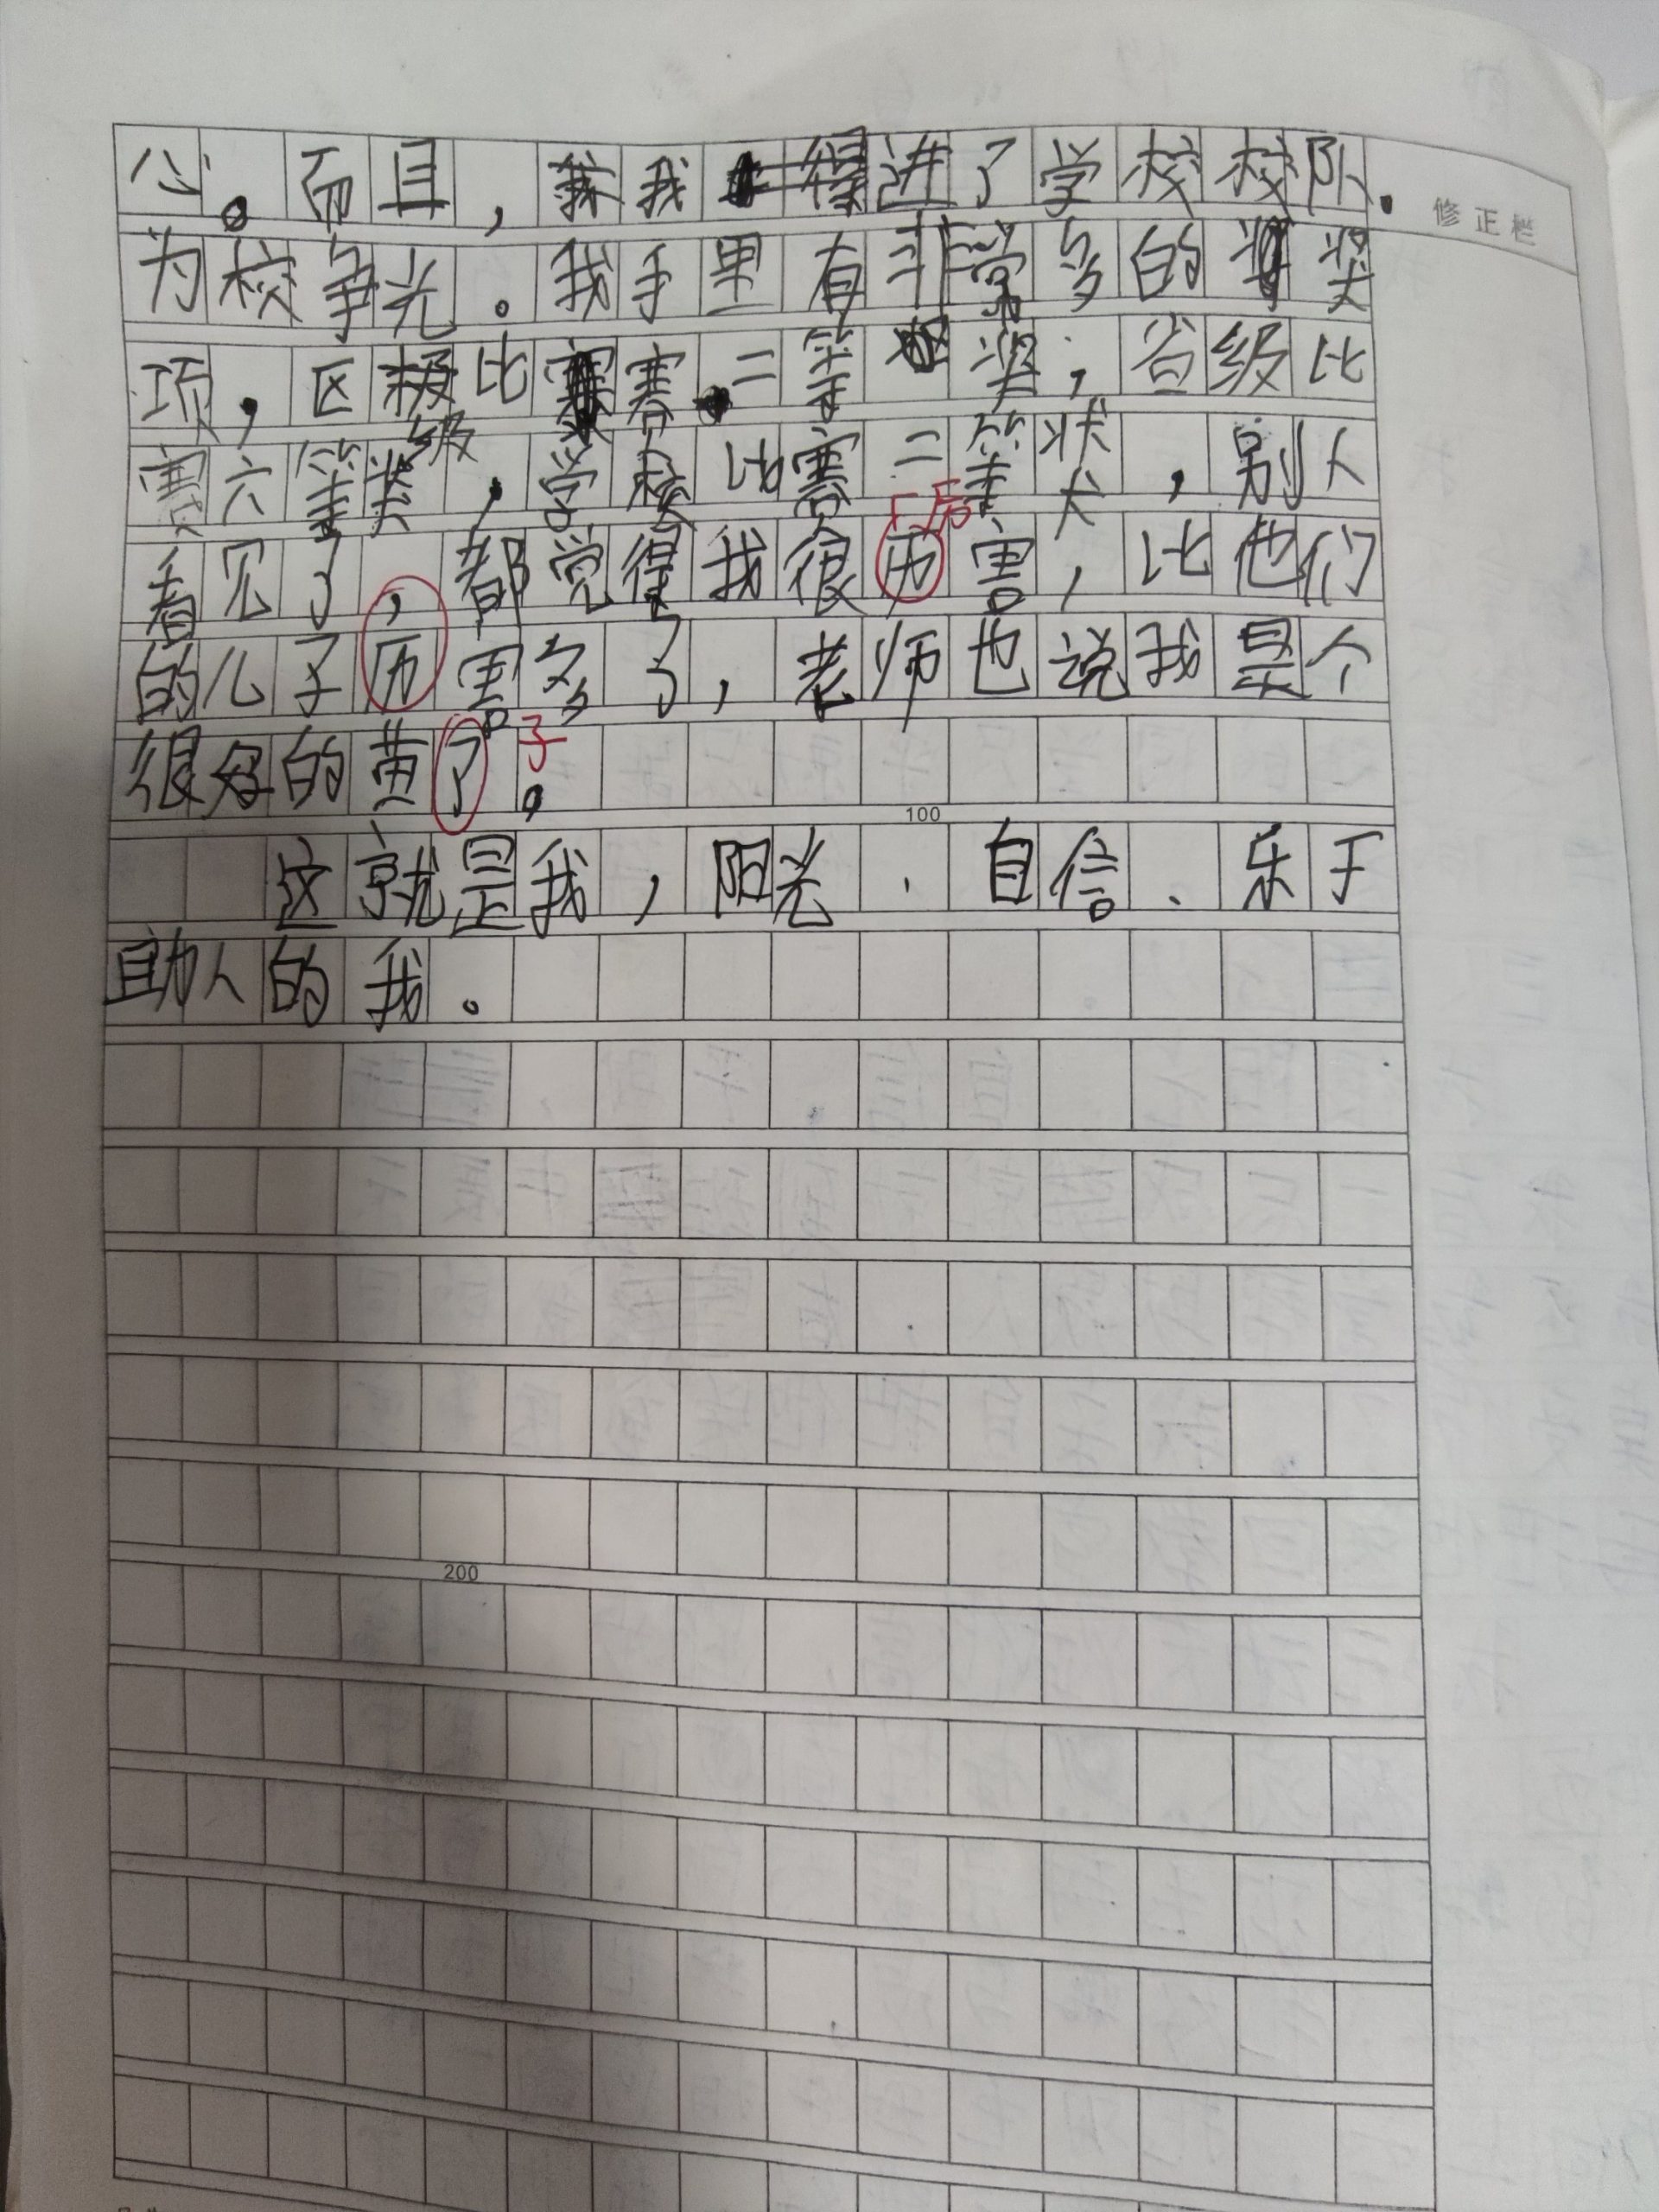 心。而且，我我得进了学校校队.
修正栏
为校争光。我手里有非常多的奖
项，区级比赛二等奖；省级比
级
赛六等奖，学校比赛二等状，别人
厉
看见了，都觉得我很历害，比他们
的儿子历害多了，老师也说我是个
子
很好的苗了。
100
这就是我，阳光、自信、乐于
助人的我。
200